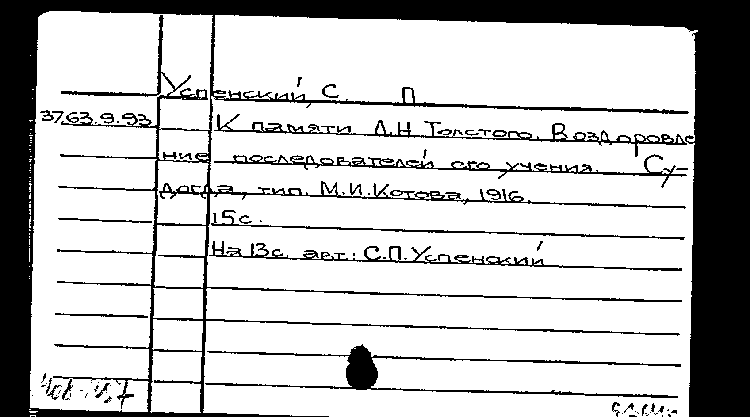 Успенский, С П
37.63.9.93 К памяти Л.Н Толстого. Воздоровле
ние последователей его учения. Су=
догда, тип. М.И.Котова, 1916.
15 с.
На 13с. авт: С.П.Успенский